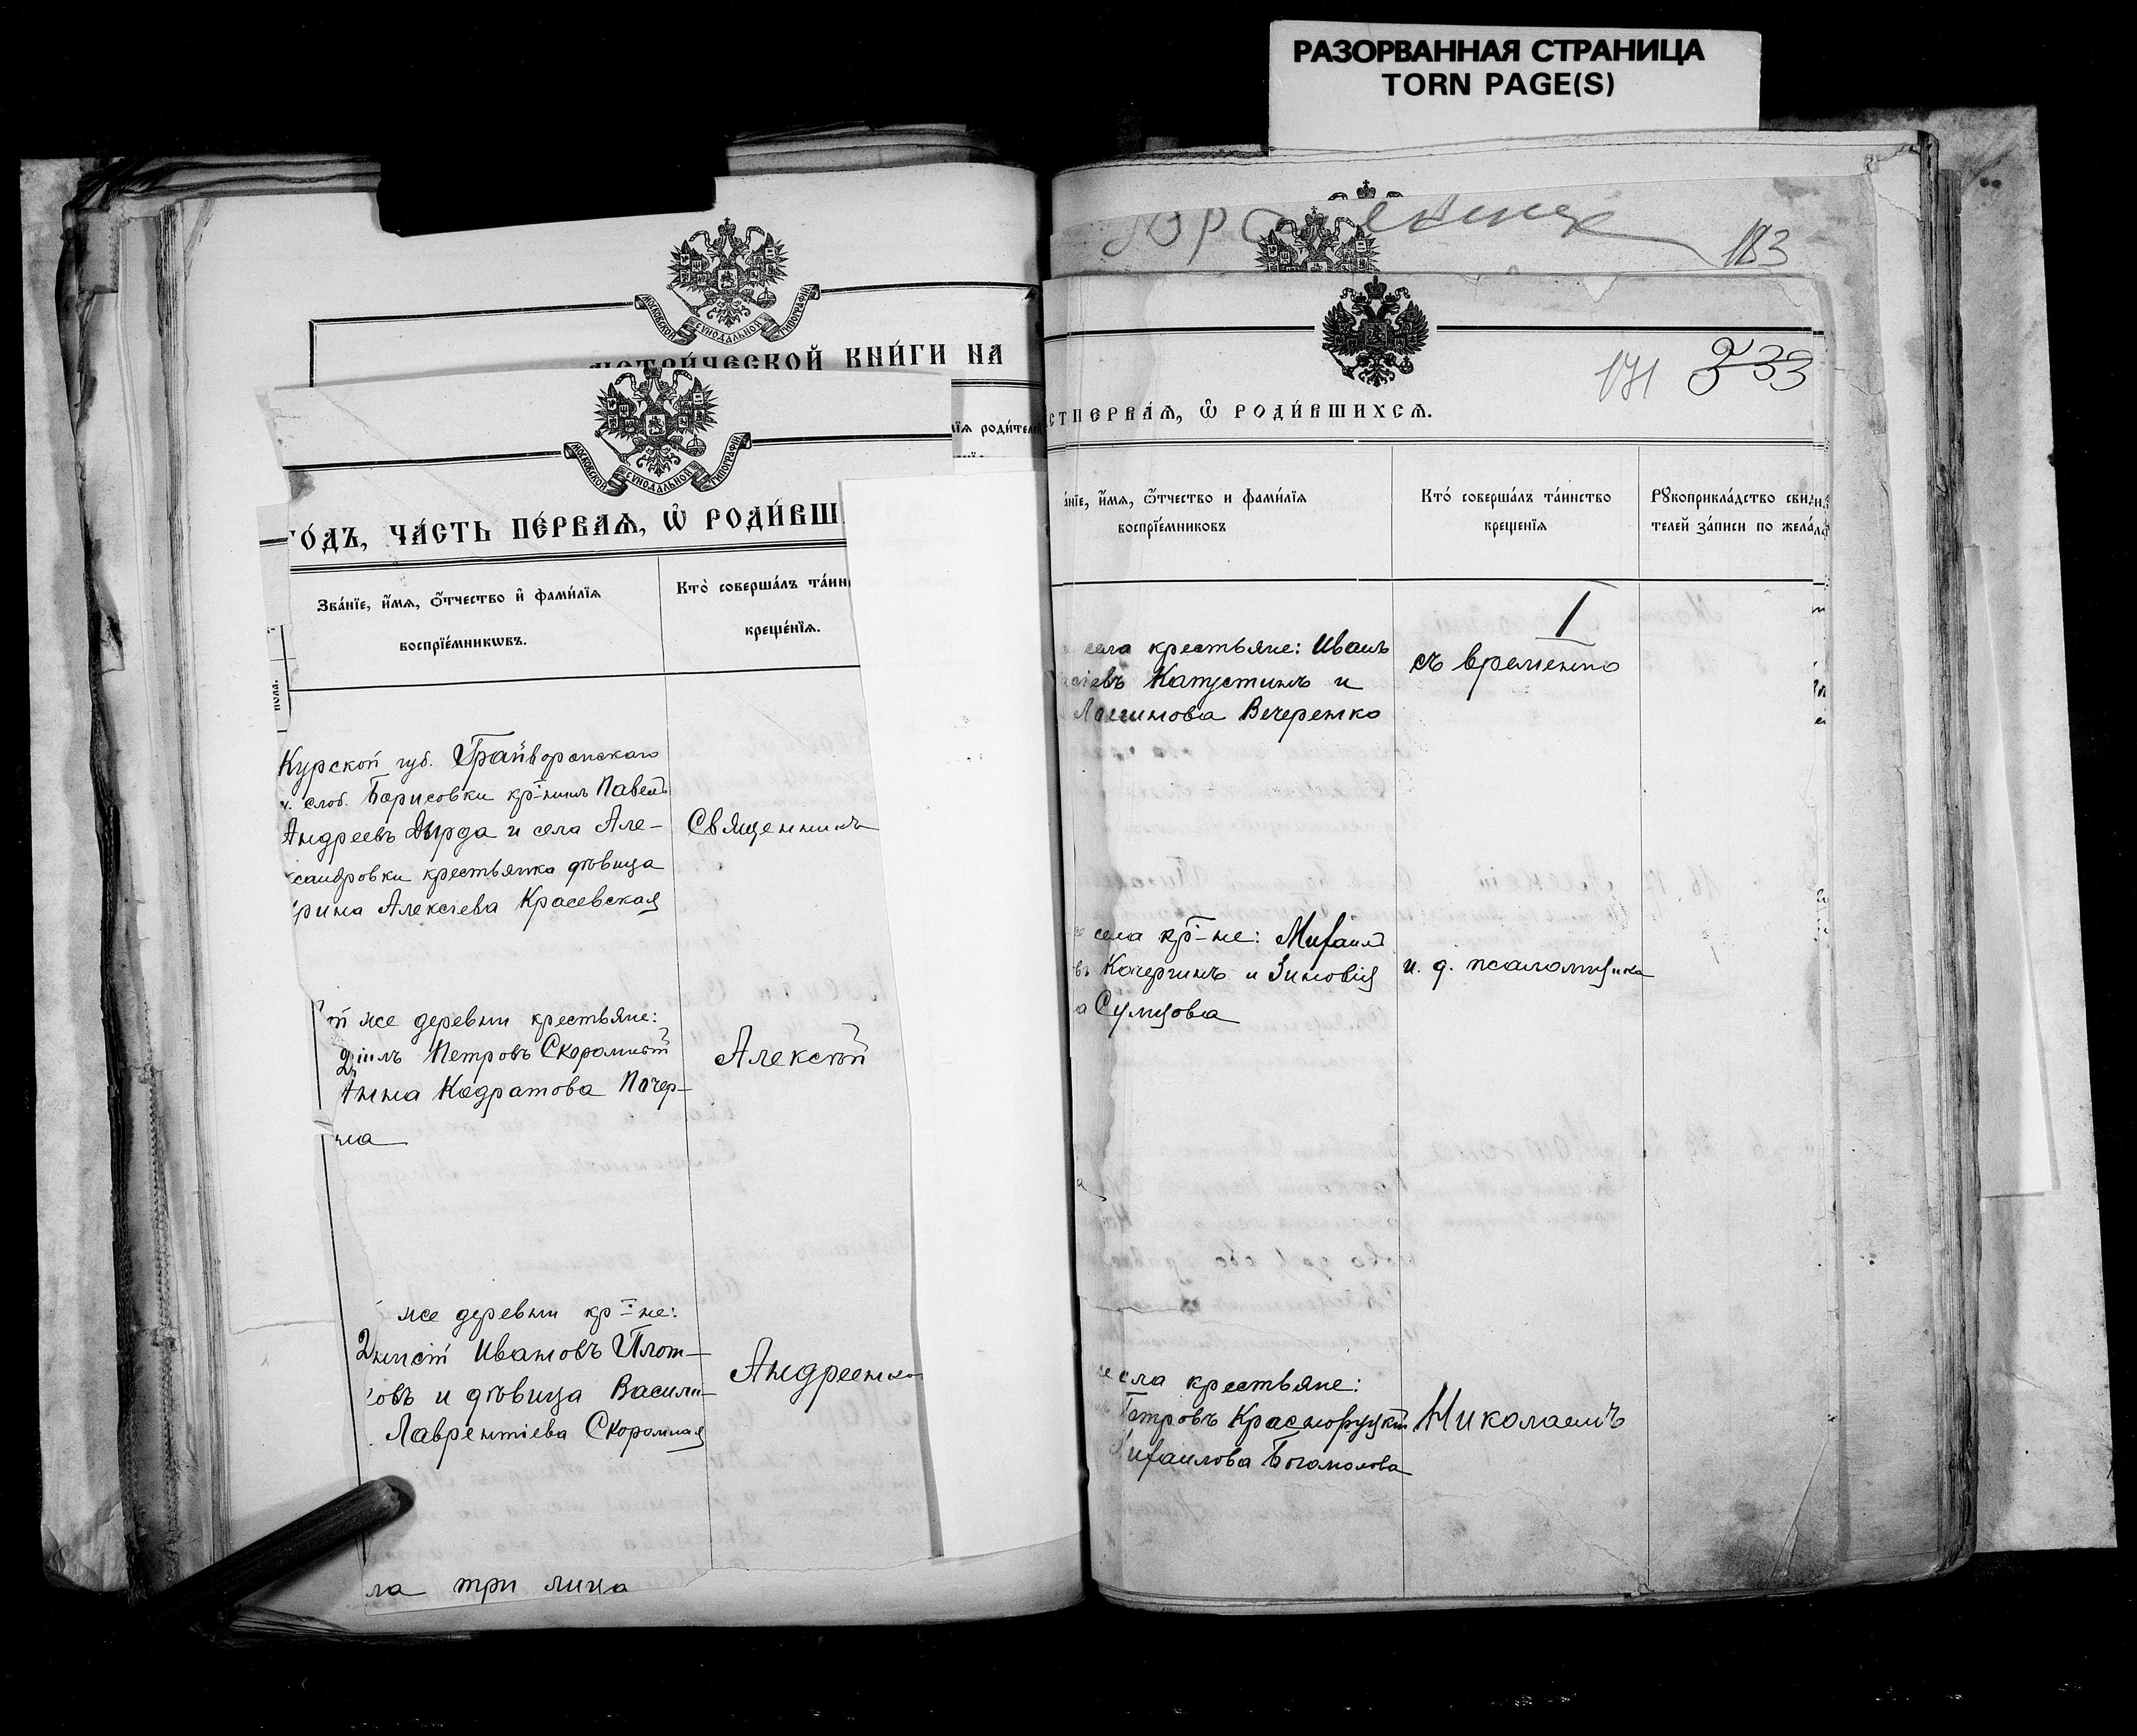 РАЗОРВАННАЯ СТРАНИЦА
TORN PAGE(S)
МОСКОВСКОЙ СѴНОДАЛЬНОЙ ТИПОГРАФІИ
МЕТРИ́ЧЕСКОЙ КНИ́ГИ НА
МОСКОВСКОЙ СѴНОДАЛЬНОЙ ТИПОГРАФІИ
ГО́ДЪ, ЧА́СТЬ ПЕ́РВАѦ, Ѡ҆ РОДИ́ВШ
Зва́нїе, и҆́мѧ, ѻ҆́тчество и҆ фами́лїѧ
воспрїе́мникѡвъ.
Кто̀ соверша́лъ та́ин
креще́нїѧ.
пола.
Курской губ. Грайворонскаго
у. слоб. Борисовки кр-нинъ Павелъ
Андреевъ Дырда и села Але-
ксандровки крестьянка дѣвица
рина Алексіева Красевская
Священникъ
й же деревни крестьяне:
Петровъ Скоромный
Анна Кодратова Почер-
на
Алексѣй
же деревни кр-не:
Ивановъ Плот-
овъ и дѣвица Васили-
Лаврентіева Скоромная
Андреенко
ла три лица
183
171 233
СТ ПЕРВА́Ѧ, Ѡ҆ РОДИ́ВШИХСѦ.
а́нїе, и҆́мѧ, ѻ҆́тчество и фами́лїѧ
воспрїе́мниковъ
Кто́ соверша́лъ та́инство
креще́нїѧ
Рꙋкоприкла́дство свидѣ
телей за́писи по жела́
1
села крестьяне: Иванъ
сіевъ Капустинъ и
Логинова Вечеренко
съ временно
села кр-не: Михаилъ
въ Кочергинъ и Зиновія
а Сумцова
и. д. псаломщика
села крестьяне:
Петровъ Краснoруцкій
Михаилова Богомолова
Николаемъ